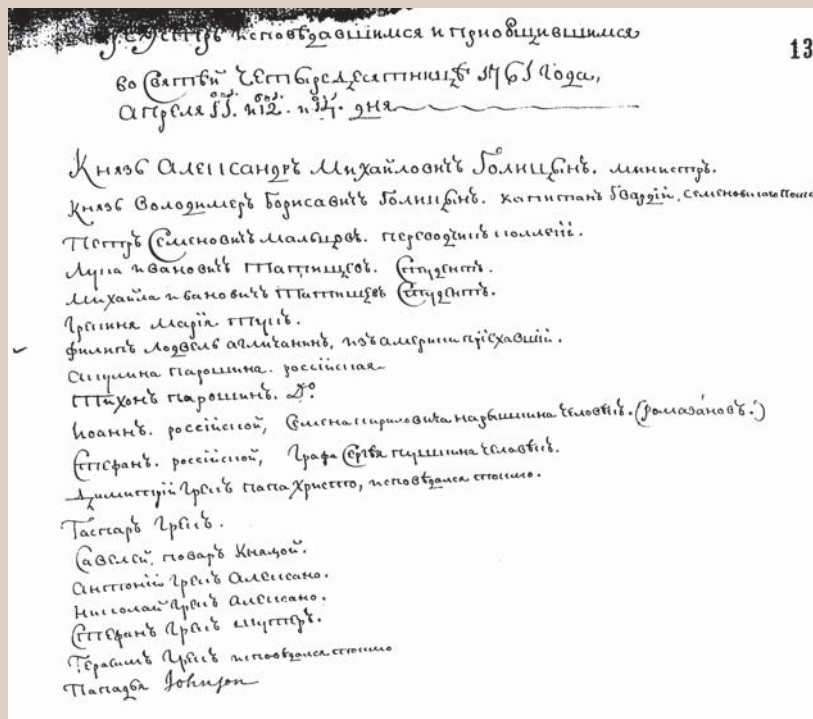 Реэстръ исповѣдавшимся и приобщившимся
13
во Святѣй Четыредесятницѣ 1761 года,
апреля 11. и 12. и 14. дня
Князь Александръ Михайловичь Голицынъ. министръ.
Князь Володимеръ Борисавичь Голицынъ. капитанъ Гвардїи, семеновскаго
Петръ Семеновичь Мальцовъ. переводчикъ коллегїи.
Лука ивановичь Татищевъ. Студентъ.
Михайла ивановичь Татищевъ Студентъ.
Гречина Марїа
филипъ Лодвель агличанинъ, изъ америки прїехавшїй.
Акулина парошина. россїйская
Тихонъ парошинъ. Dº.
Иоаннъ. россїйской, Семена кириловича нарышкина человѣкъ. (ромаза́новъ.)
Стефанъ. россїйской, Графа Сергѣя пушкина человѣкъ.
Димитрїй Грекъ папа Христо, исповѣдался токмо.
Гаспаръ Грекъ.
Савелей, поваръ Княжой.
Антонїй Грекъ Алексано.
Николай Грекъ Алексано.
Стефанъ Грекъ
Герасимъ Грекъ исповѣдался токмо
Пападья Johnson